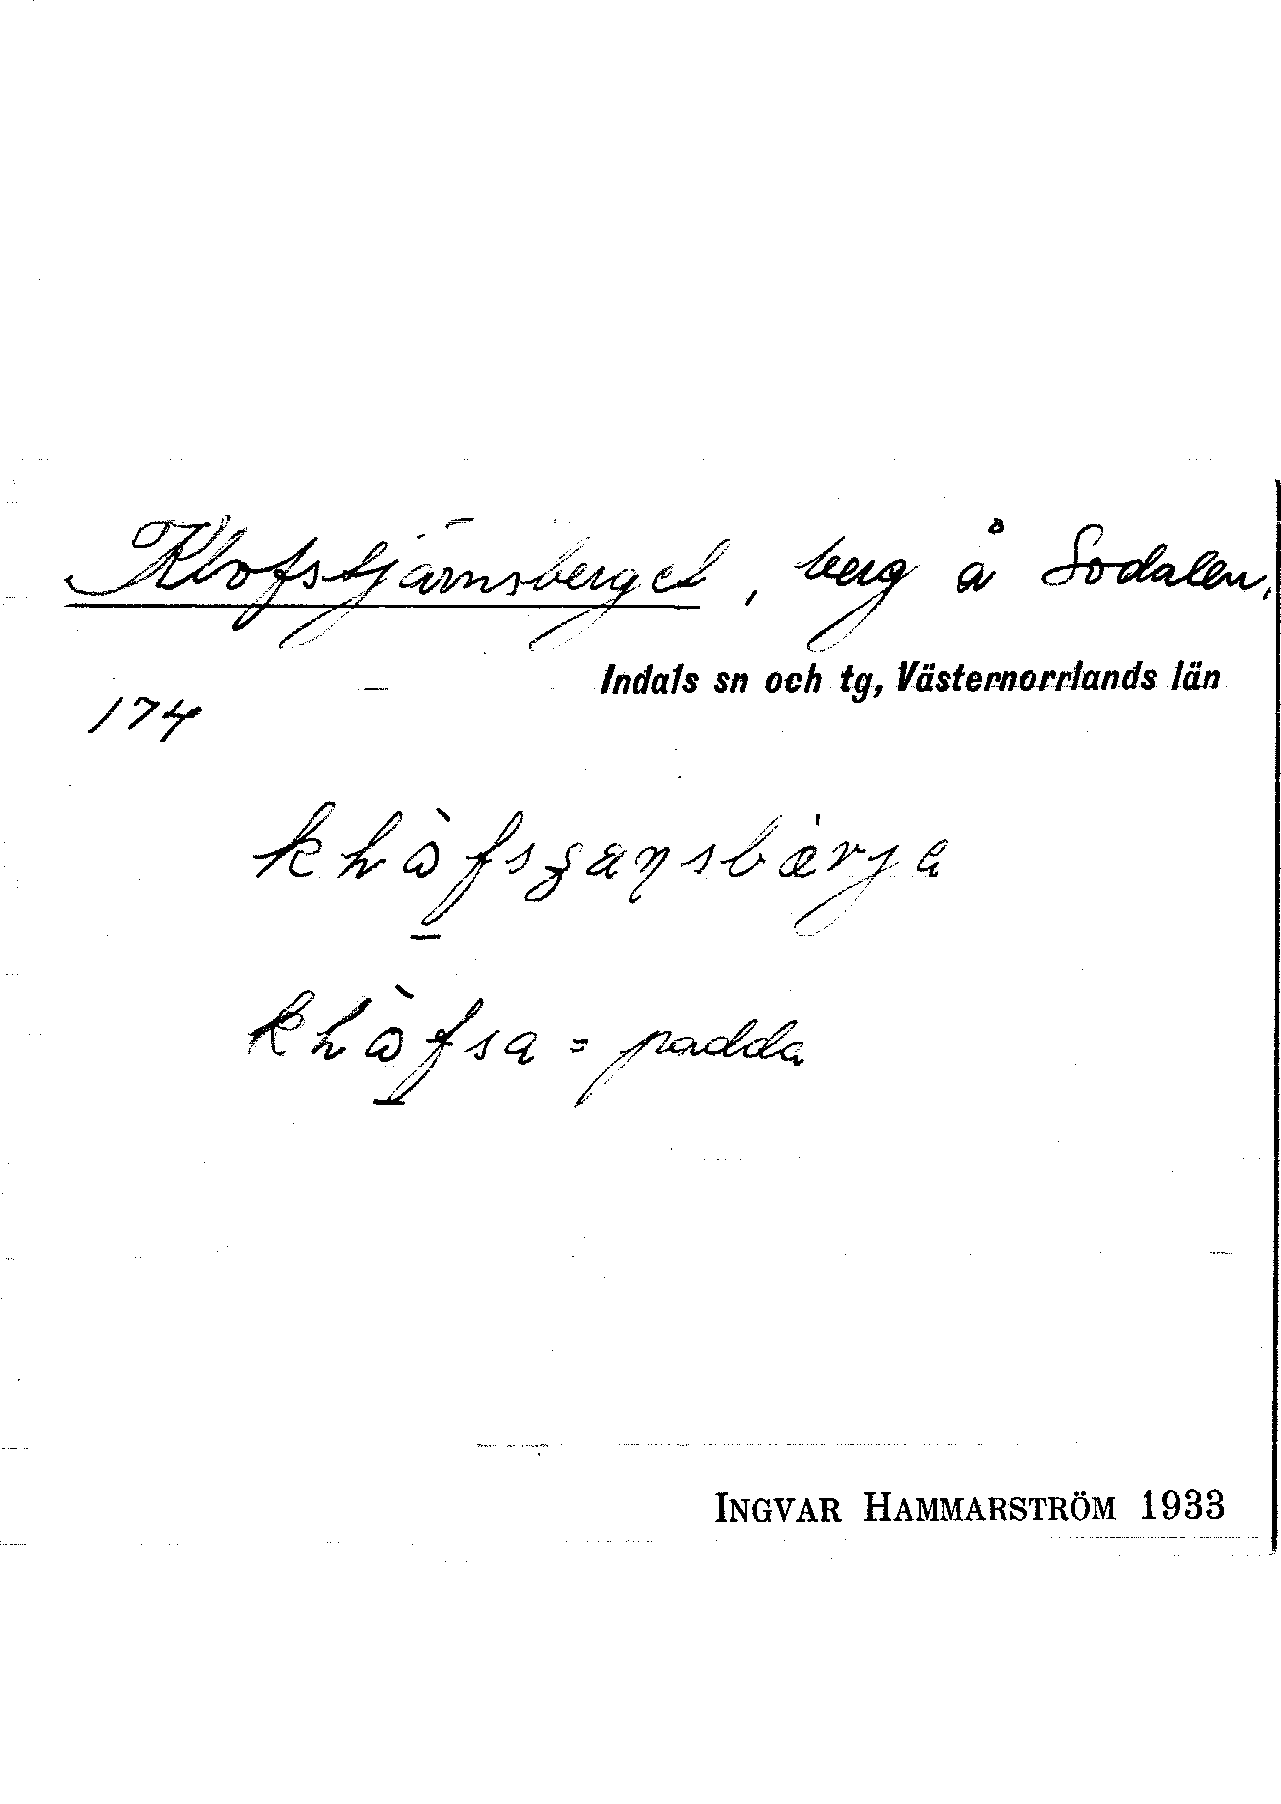 Klofstjärnsberget, berg å Sodalen.
Indals sn och tg, Västernorrlands län
174
kḷòfsʒaɳsbærja
kḷòfsa = padda
INGVAR HAMMARSTRÖM 1933